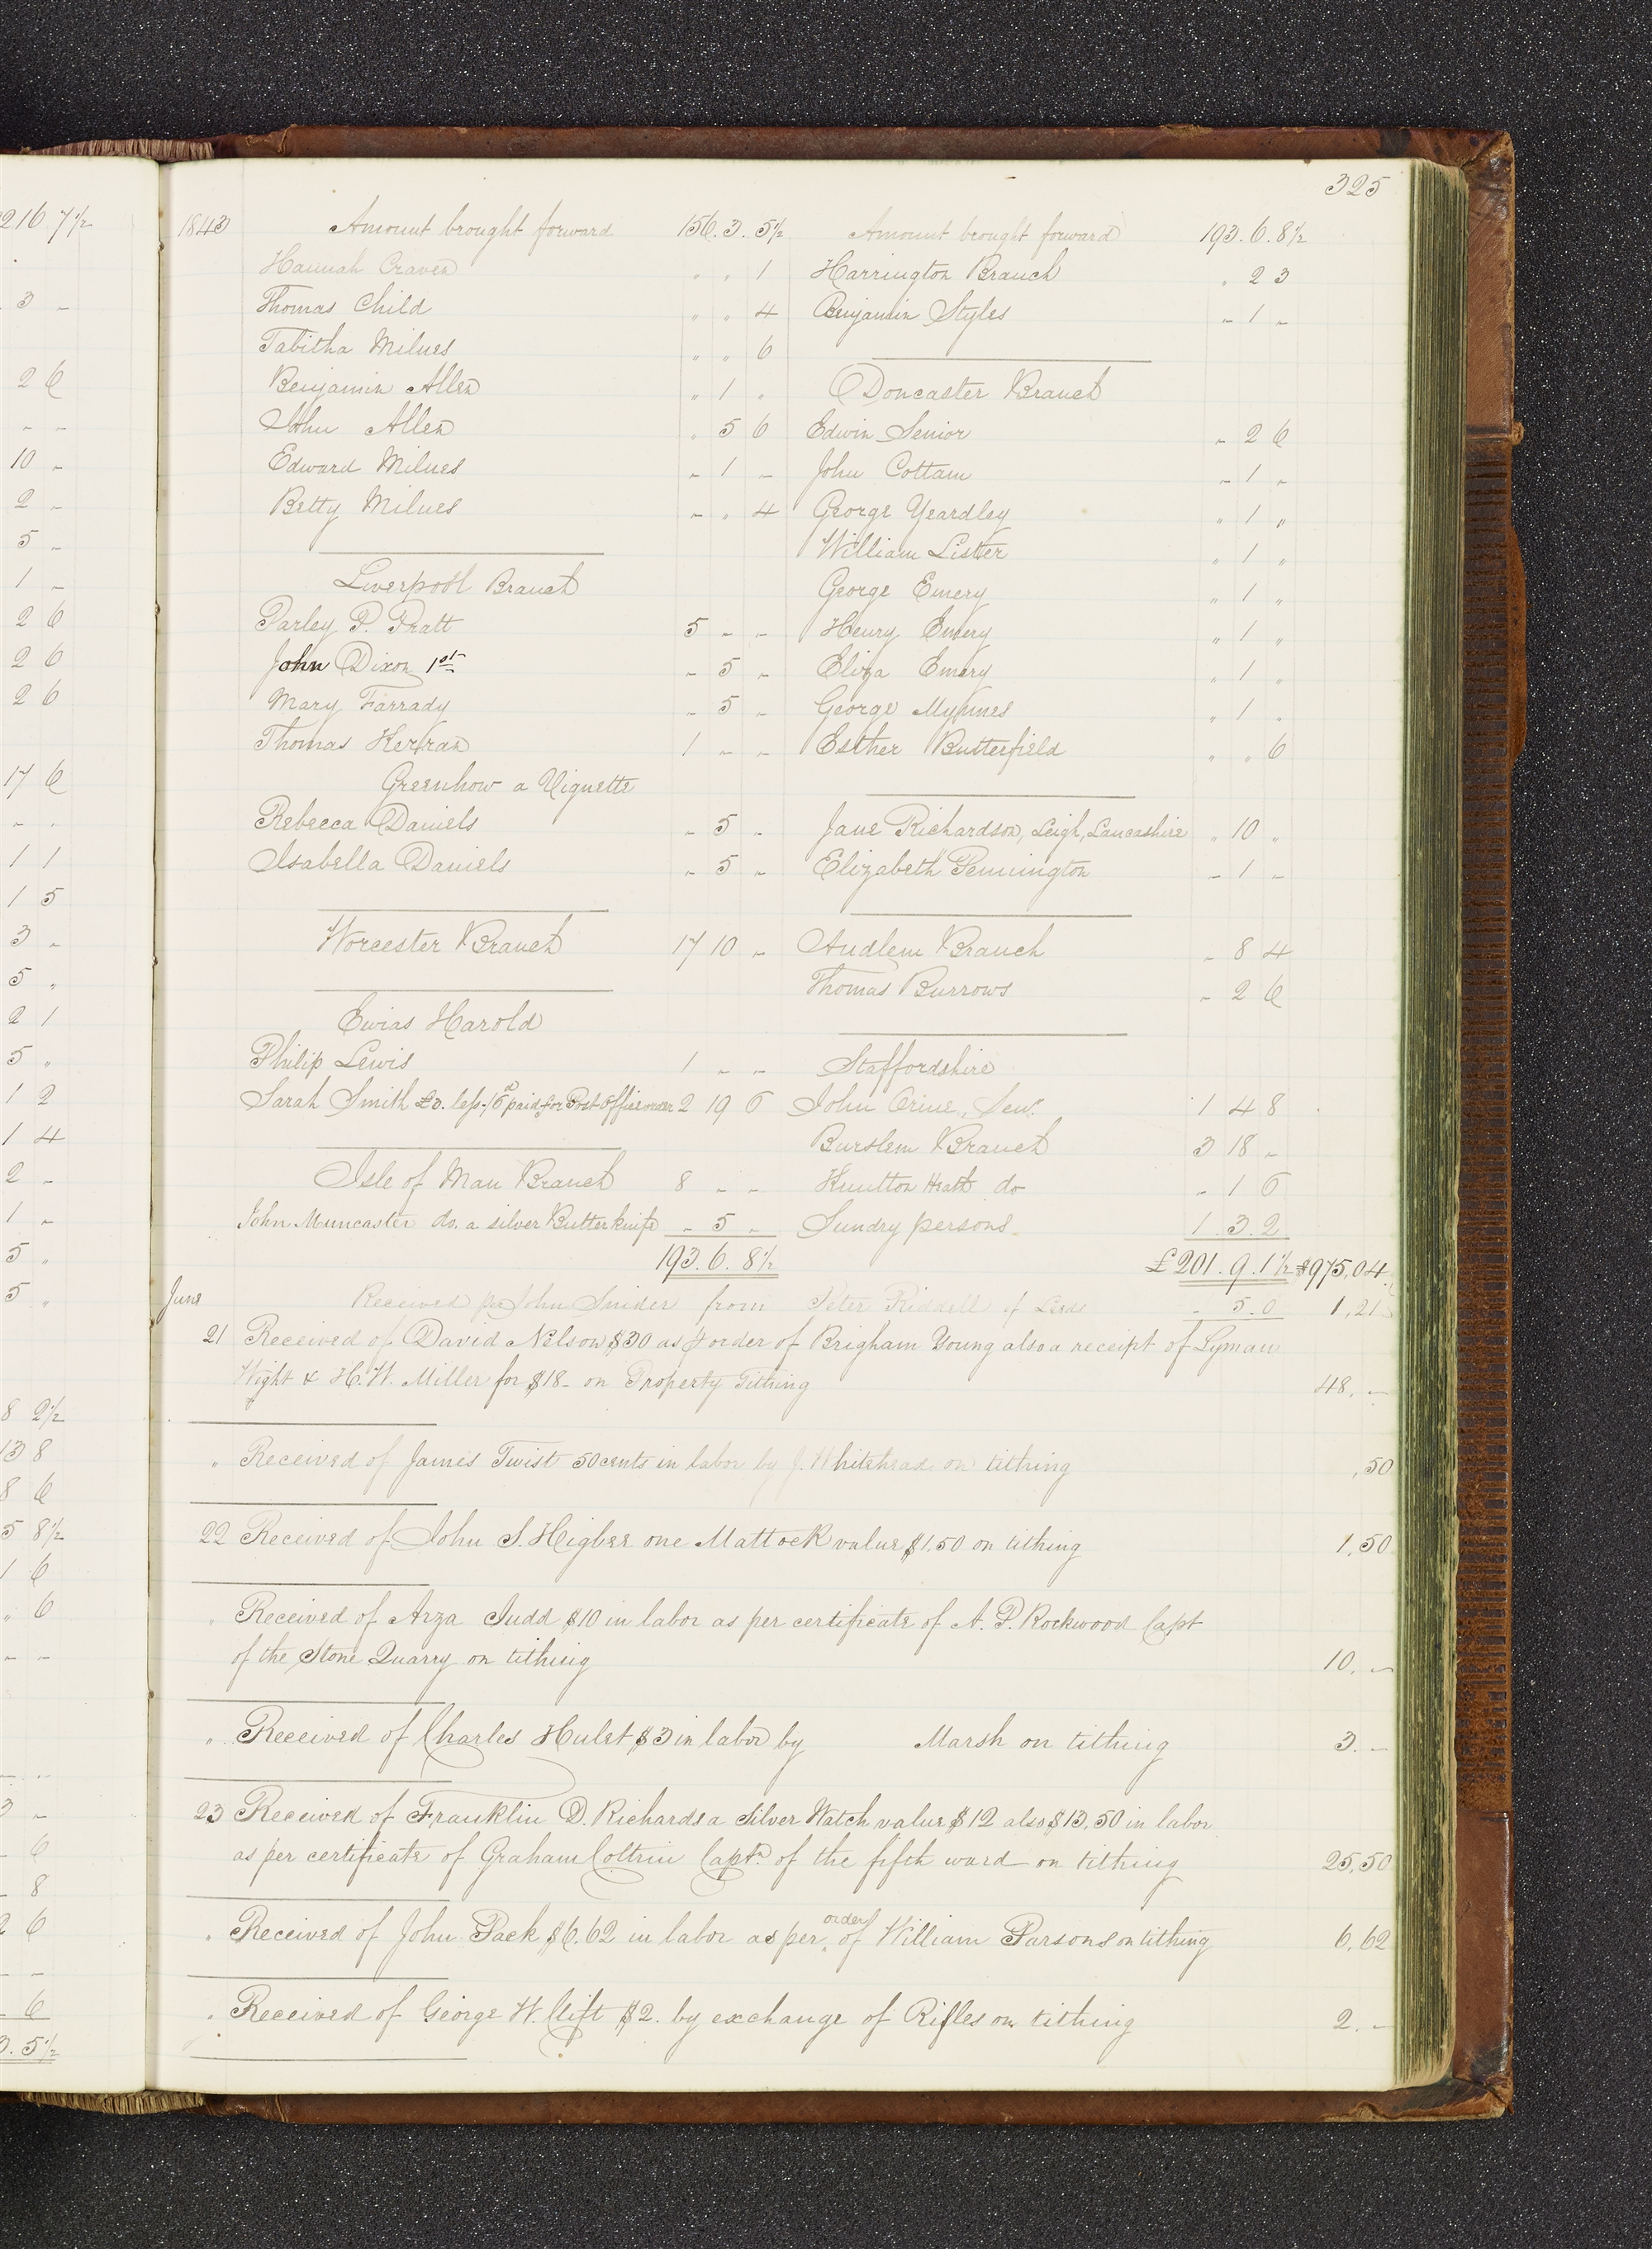 325
1843 Amount brought forward 156. 3. 5½
Hannah Craven " " 1
Thomas Child " " 4
Tabitha Milnes " " 6
Benjamin Allen " 1 "
John Allen " 5 6
Edward Milnes - 1 -
Betty Milnes - " 4
Liverpool Branch
Parley P. Pratt 5 - -
John Dixon 1st - 5 -
Mary Farrady - 5 -
Thomas 1 - -
Greenhow a Vignette
Rebecca Daniels - 5 -
Isabella Daniels - 5 -
Worcester Branch 17 10 -
Ewias Harold
Philip Lewis 1 - -
Sarah Smith £3. less. /6d paid for Post Office order 2 19 6
Isle of Man Branch 8 - -
John Muncaster do. a silver Butter knife - 5 -
193. 6. 8½
Amount brought forward 193. 6. 8½
Harrington Branch " 2 3
Benjamin Styles - 1 -
Doncaster Branch
Edwin Senior - 2 6
John Cottam - 1 -
George Yeardley " 1 "
William Lister " 1 "
George Emery " 1 "
Henry Emery " 1 "
Eliza Emery " 1 "
George " 1 "
Esther Butterfield " " 6
Jane Richardson, Leigh, Lancashire " 10 "
Elizabeth Pennington - 1 -
Audlem Branch - 8 4
Thomas Burrows - 2 6
Staffordshire
John Senr. 1 4 8
Burslem Branch 3 18 -
Knutton Heath do - 1 6
Sundry persons 1. 3. 2
£201. 9. 1½ $975,04
June Received per John Snider from Peter Riddell of Leeds - 5. 0 1,21
21 Received of David Nelson $30 as p order of Brigham Young also a receipt of Lyman
Wight & H. W. Miller for $18- on Property Tithing 48. -
" Received of James Twist 50 cents in labor by J. Whitehead on tithing ,50
22 Received of John S. Higbee one Mattock value $1.50 on tithing 1,50
" Received of Arza Judd $10 in labor as per certificate of A. P. Rockwood Capt
of the Stone Quarry on tithing 10. -
" Received of Charles Hulet $3 in labor by Marsh on tithing 3. -
23 Received of Franklin D. Richards a Silver Watch value $12 also $13,50 in labor
as per certificate of Graham Coltrin Capt. of the fifth ward on tithing 25,50
" Received of John Pack $6.62 in labor as per order of William Parsons on tithing 6,62
" Received of George W. Clift $2. by exchange of Rifles on tithing 2. -